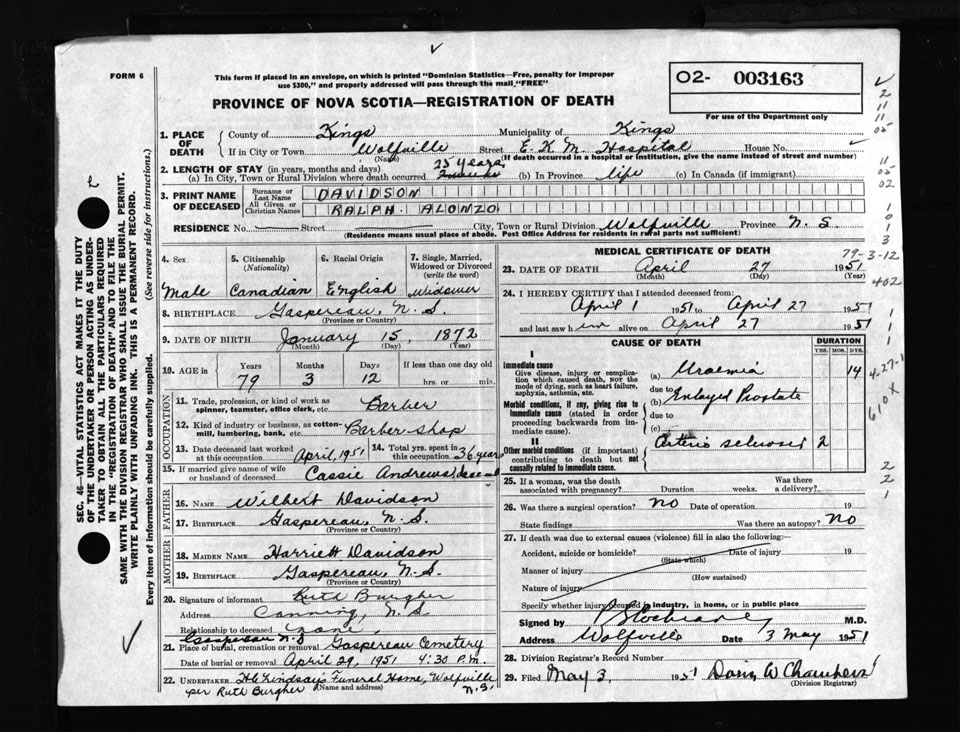 FORM 6
This form if placed in an envelope, on which is printed "Dominion Statistics—Free, penalty for improper
use $300," and properly addressed will pass through the mail "FREE"
PROVINCE OF NOVA SCOTIA—REGISTRATION OF DEATH
O2- 003163
For use of the Department only
1. PLACE OF DEATH
County of Kings Municipality of Kings
If in City or Town Wolfville Street E. K. M. Hospital House No.
(Name) (If death occurred in a hospital or institution, give the name instead of street and number)
2. LENGTH OF STAY (in years, months and days)
(a) In City, Town or Rural Division where death occurred 25 years (b) In Province life (c) In Canada (if immigrant)
3. PRINT NAME OF DECEASED
Surname or Last Name DAVIDSON
All Given or Christian Names RALPH. ALONZO
RESIDENCE No. Street City, Town or Rural Division Wolfville Province N. S.
(Residence means usual place of abode. Post Office Address for residents in rural parts not sufficient)
4. Sex 5. Citizenship (Nationality) 6. Racial Origin 7. Single, Married, Widowed or Divorced (write the word)
Male Canadian English Widower
8. BIRTHPLACE Gaspereau, N. S.
(Province or Country)
9. DATE OF BIRTH January 15, 1872
(Month) (Day) (Year)
10. AGE in Years Months Days If less than one day old
79 3 12 hrs. or min.
OCCUPATION
11. Trade, profession, or kind of work as spinner, teamster, office clerk, etc. Barber
12. Kind of industry or business, as cotton-mill, lumbering, bank, etc. Barber-shop
13. Date deceased last worked at this occupation April, 1951 14. Total yrs. spent in this occupation 36 years
15. If married give name of wife or husband of deceased Cassie Andrews
FATHER
16. NAME Wilbert Davidson
17. BIRTHPLACE Gaspereau, N. S.
(Province or Country)
MOTHER
18. MAIDEN NAME Harriett Davidson
19. BIRTHPLACE Gaspereau, N. S.
(Province or Country)
20. Signature of informant Ruth Burgher
Address Canning, N. S.
Relationship to deceased none
Gaspereau N.S
21. Place of burial, cremation or removal Gaspereau Cemetery
Date of burial or removal April 29, 1951 4:30 P.M.
22. UNDERTAKER H.C. Lindsay's Funeral Home, Wolfville N.S.
(Name and address)
per Ruth Burgher
MEDICAL CERTIFICATE OF DEATH
23. DATE OF DEATH April 27 1951
(Month) (Day) (Year)
24. I HEREBY CERTIFY that I attended deceased from:
April 1 1951 to April 27 1951
and last saw him alive on April 27 1951
CAUSE OF DEATH DURATION
YRS. MOS. DYS.
I
Immediate cause
Give disease, injury or complication which caused death, NOT the mode of dying, such as heart failure, asphyxia, asthenia, etc.
(a) Uraemia 14
due to
Morbid conditions, if any, giving rise to immediate cause (stated in order proceeding backwards from immediate cause).
(b) Enlarged Prostate
due to
(c)
II
Other morbid conditions (if important) contributing to death but not causally related to immediate cause.
Arterio sclerosis 2
25. If a woman, was the death associated with pregnancy? Duration weeks. Was there a delivery?
26. Was there a surgical operation? NO Date of operation 19
State findings Was there an autopsy? NO
27. If death was due to external causes (violence) fill in also the following:—
Accident, suicide or homicide? Date of injury 19
(State which)
Manner of injury
(How sustained)
Nature of injury
Specify whether injury occurred in industry, in home, or in public place
Signed by Cochrane M.D.
Address Wolfville Date 3 May 1951
28. Division Registrar's Record Number
29. Filed May 3, 1951 Doris W. Chambers
(Division Registrar)
SEC. 46—VITAL STATISTICS ACT MAKES IT THE DUTY
OF THE UNDERTAKER OR PERSON ACTING AS UNDER-
TAKER TO OBTAIN ALL THE PARTICULARS REQUIRED
IN THE "REGISTRATION OF DEATH" AND TO FILE THE
SAME WITH THE DIVISION REGISTRAR WHO SHALL ISSUE THE BURIAL PERMIT.
WRITE PLAINLY WITH UNFADING INK. THIS IS A PERMANENT RECORD.
Every item of information should be carefully supplied. (See reverse side for instructions.)
2
11
11
05
11
05
02
1
0
1
3
79-3-12
402
1
1
1
4-27-1
610X
2
2
1